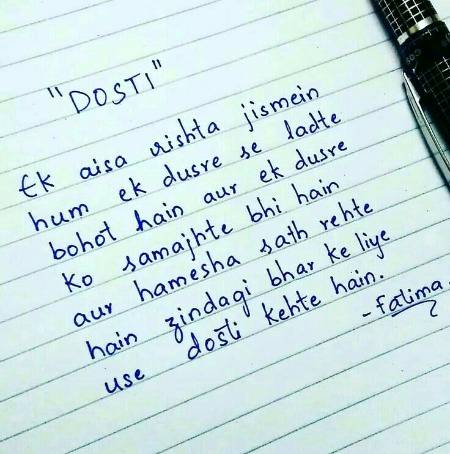 "DOSTI"
Ek aisa rishta jismein
hum ek dusre se ladte
bohot hain aur ek dusre
ko samajhte bhi hain
aur hamesha sath rehte
hain zindagi bhar ke liye
use dosti kehte hain.
-fatima.